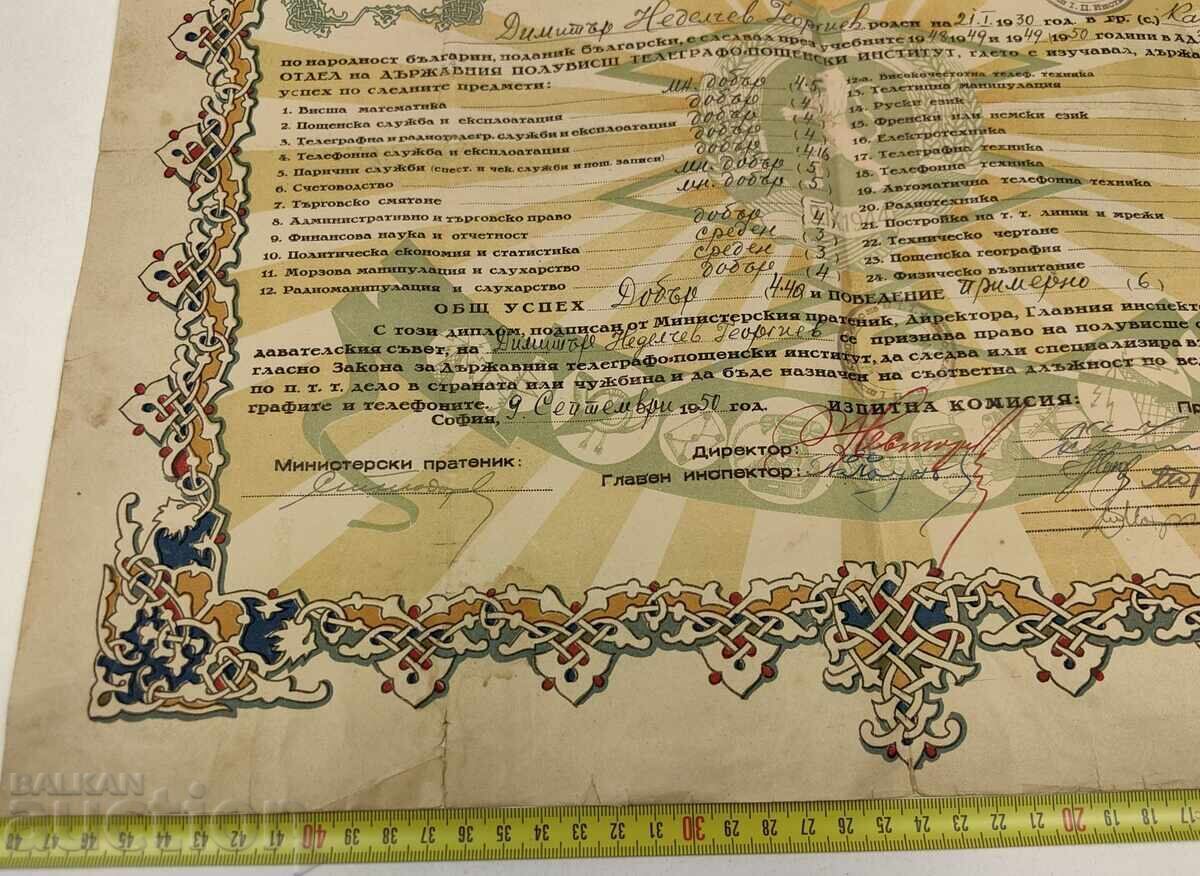 Димитър Неделчев Георгиев, роден на 21.I.1930 год. в гр. (с.)
по народност българин, поданик български, е следвал през учебните 1948/1949 и 1949/1950 години в
ОТДЕЛ на ДЪРЖАВНИЯ ПОЛУВИСШ ТЕЛЕГРАФО-ПОЩЕНСКИ ИНСТИТУТ, гдето е изучавал,
успех по следните предмети:
1. Висша математика мн. добър (4.5
2. Пощенска служба и експлоатация добър (4
3. Телеграфна и радиотелегр. служби и експлоатация добър
4. Телефонна служба и експлоатация добър (4
5. Парични служби (спест. и чек. служби и пощ. записи) добър (4.16
6. Счетоводство мн. добър (5)
7. Търговско смятане мн. добър (5)
8. Административно и търговско право добър (4)
9. Финансова наука и отчетност среден (3)
10. Политическа економия и статистика среден (3)
11. Морзова манипулация и слухарство добър (4)
12. Радиоманипулация и слухарство
12-а. Високочестотна телеф. техника
13. Телетипна манипулация
14. Руски език
15. Френски или немски език
16. Електротехника
17. Телеграфна техника
18. Телефонна техника
19. Автоматична телефонна техника
20. Радиотехника
21. Постройка на т. т. линии и мрежи
22. Техническо чертане
23. Пощенска география
24. Физическо възпитание
ОБЩ УСПЕХ Добър (4.40 и ПОВЕДЕНИЕ примерно (6)
С този диплом, подписан от Министерския пратеник, Директора, Главния
давателския съвет, на Димитър Неделчев Георгиев се признава право на полувисше
гласно Закона за Държавния телеграфо-пощенски институт, да следва или специализира
по п. т. т. дело в страната или чужбина и да бъде назначен на съответна длъжност по
графите и телефоните.
София, 9 Септември 1950 год.
ИЗПИТНА КОМИСИЯ:
Министерски пратеник:
Директор:
Главен инспектор:
BALKAN
auction
47 46 45 44 43 42 41 40 39 38 37 36 35 34 33 32 31 30 29 28 27 26 25 24 23 22 21 20 19 18